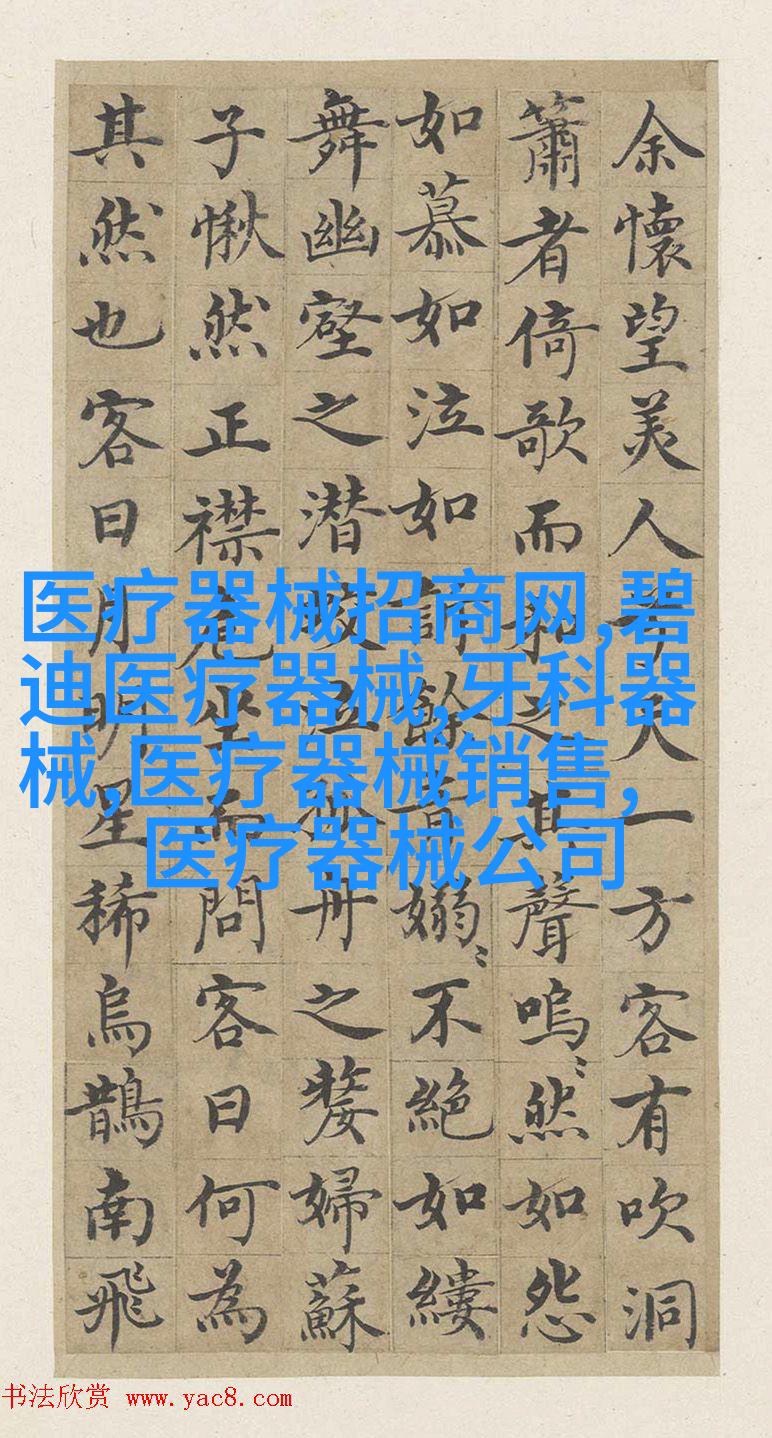 余懷望美人兮天一方客有吹洞
簫者倚歌而和之其聲嗚〻然如怨
如慕如泣如訴餘音嫋〻不絕如縷
舞幽壑之潜蛟泣孤舟之嫠婦蘇
子愀然正襟危坐而問客曰何為
其然也客曰月明星稀烏鵲南飛
医疗器械招商网,碧
迪医疗器械,牙科器
械,医疗器械销售,
医疗器械公司
书法欣赏 www.yac8.com